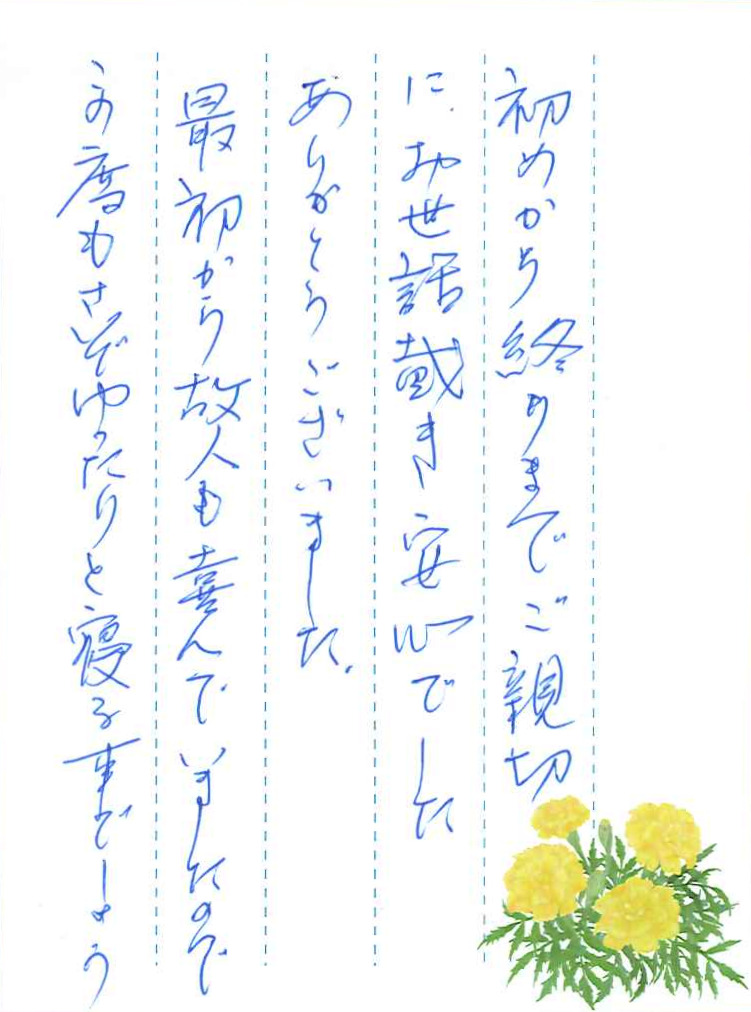 初めから終りまでご親切
に、お世話戴き安心でした
ありがとうございました。
最初から故人も喜んでいましたので
この度もさぞゆったりと寝る事でしょう